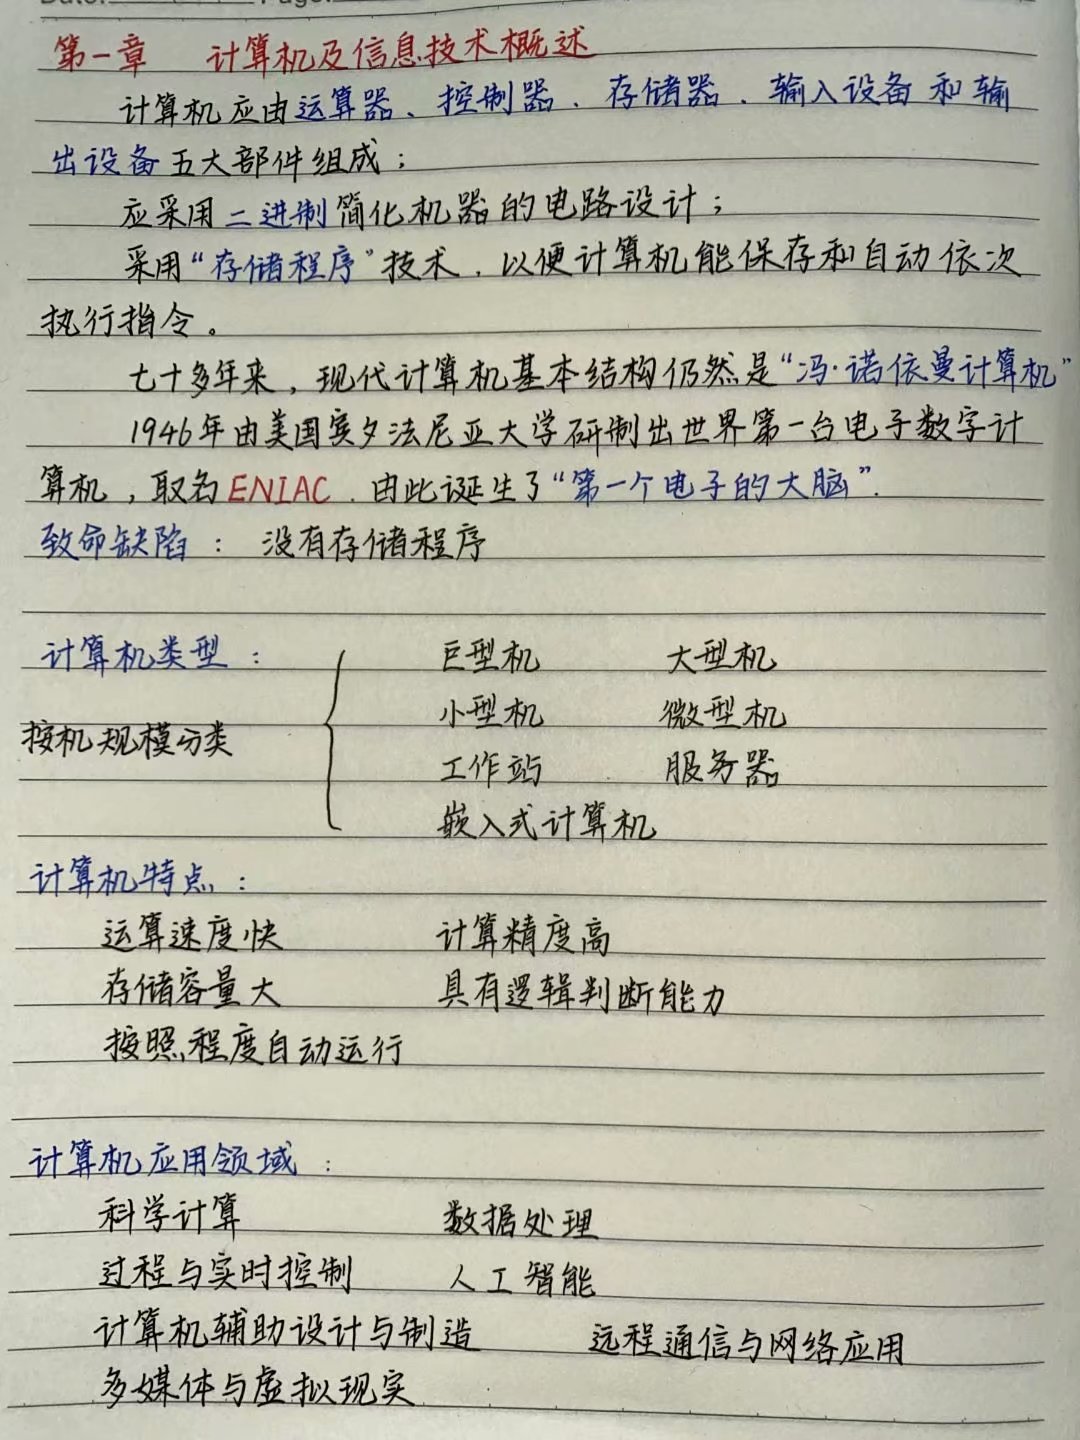 第一章 计算机及信息技术概述
计算机应由运算器、控制器、存储器、输入设备和输
出设备五大部件组成；
应采用二进制简化机器的电路设计；
采用“存储程序”技术，以便计算机能保存和自动依次
执行指令。
七十多年来，现代计算机基本结构仍然是“冯·诺依曼计算机”
1946年由美国宾夕法尼亚大学研制出世界第一台电子数字计
算机，取名ENIAC．由此诞生了“第一个电子的大脑”．
致命缺陷： 没有存储程序
计算机类型： 巨型机 大型机
小型机 微型机
按机规模分类
工作站 服务器
嵌入式计算机
计算机特点：
运算速度快 计算精度高
存储容量大 具有逻辑判断能力
按照程度自动运行
计算机应用领域：
科学计算 数据处理
过程与实时控制 人工智能
计算机辅助设计与制造 远程通信与网络应用
多媒体与虚拟现实